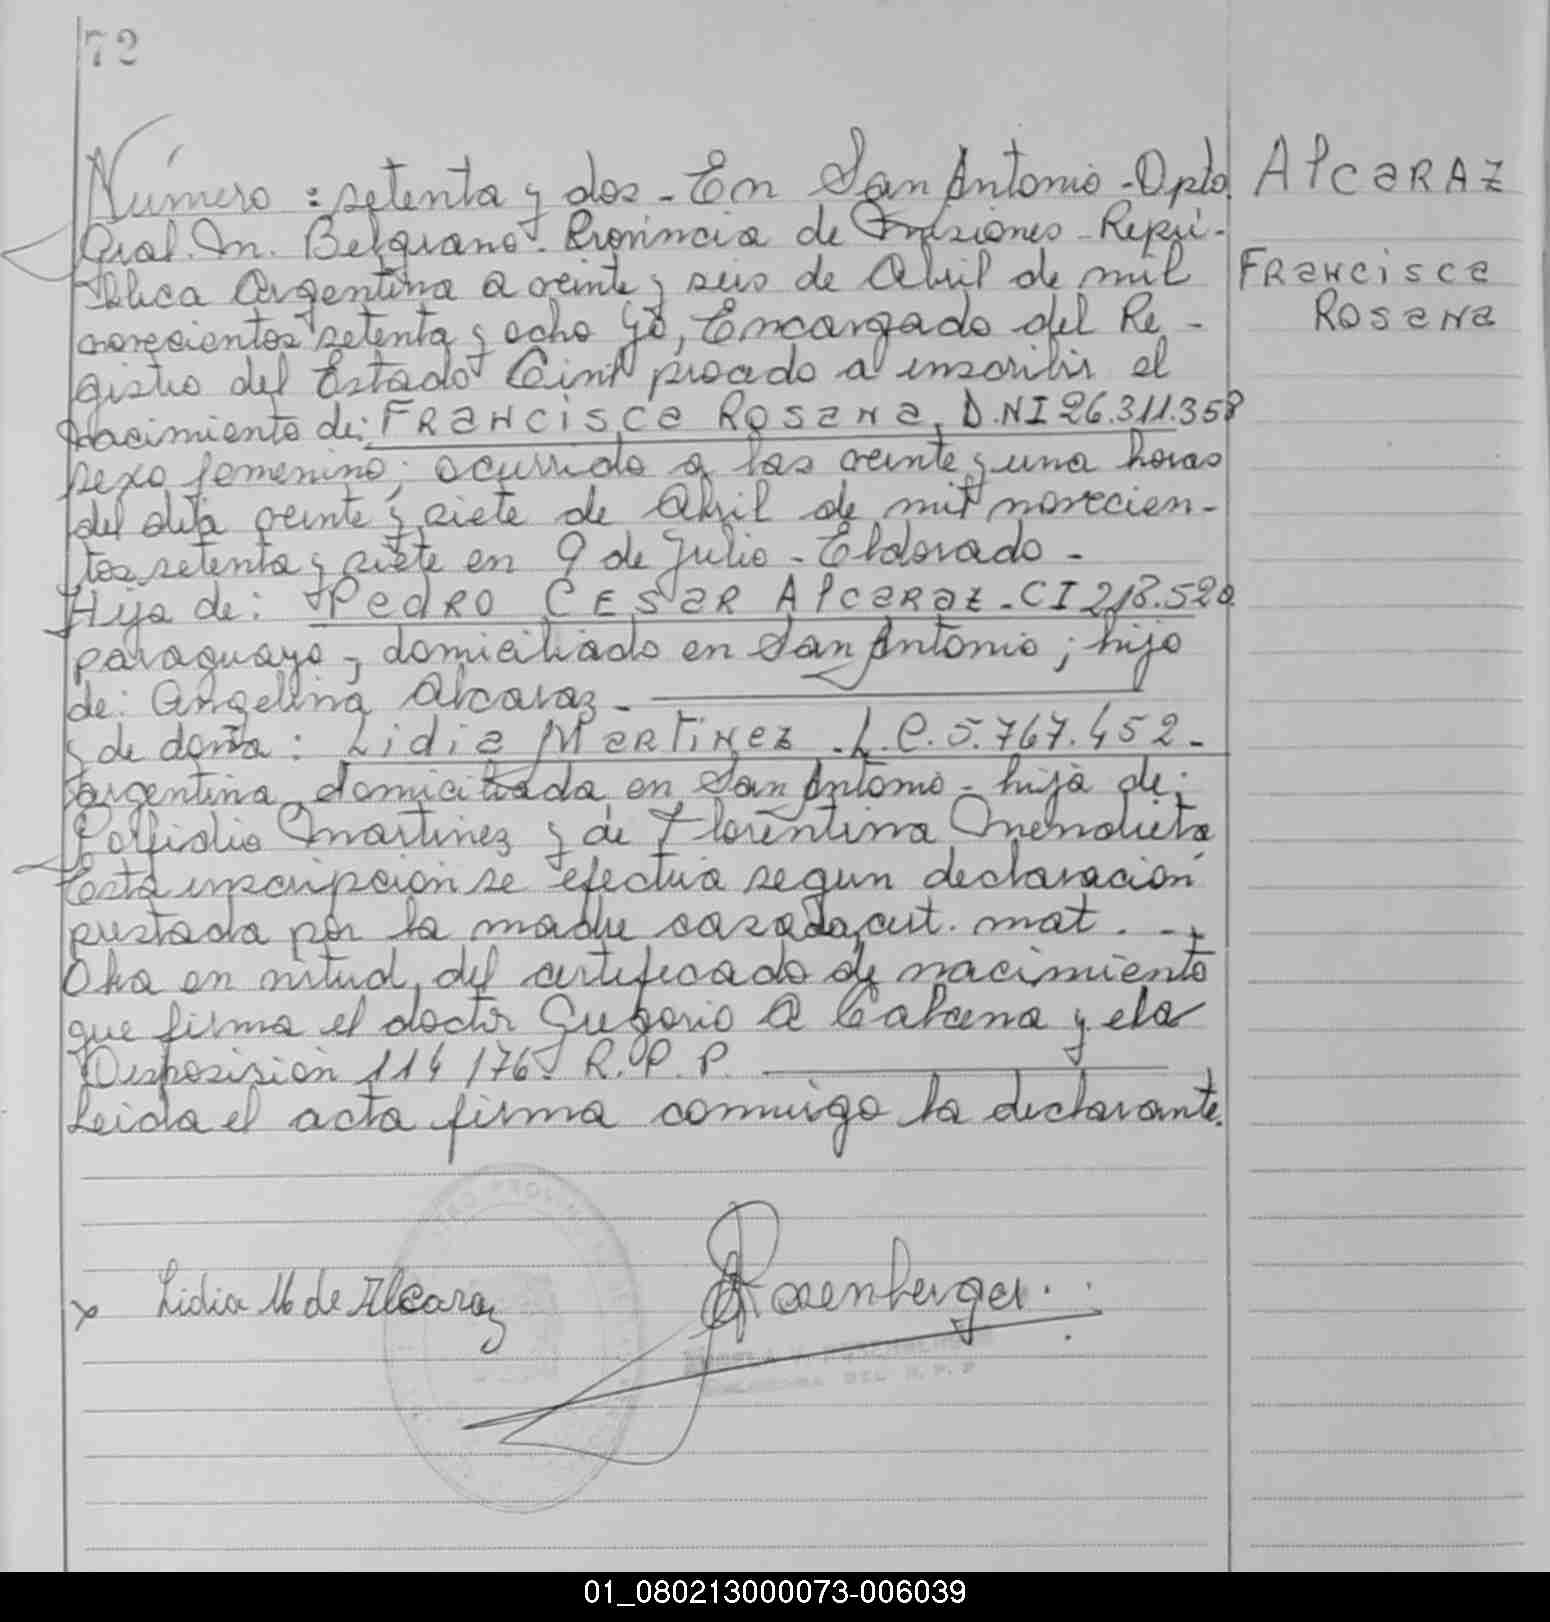 72
Número : setenta y dos - En San Antonio - Dpto.
Gral. M. Belgrano - Provincia de Misiones - Repú-
blica Argentina a veinte y seis de Abril de mil
novecientos setenta y ocho Yo, Encargado del Re -
gistro del Estado Civil procedo a inscribir el
nacimiento de: FRANCISCA ROSANA, D.NI 26.311.358
sexo femenino; ocurrido a las veinte y una horas
del día veinte y siete de Abril de mil novecien-
tos setenta y siete en 9 de Julio - Eldorado -
Hija de: PEDRO CESAR ALCARAZ - CI 218.520
paraguayo -, domiciliado en San Antonio ; hijo
de: Angelina Alcaraz -
y de doña : Lidia MARTINEZ - L.C. 5.767.452 -
argentina domiciliada en San Antonio - hija de:
Porfidio Martinez y de Florentina Mendieta
Esta inscripción se efectúa segun declaración
prestada por la madre casada, cert. mat. -
Obra en virtud del certificado de nacimiento
que firma el doctor Gregorio A y
Disposisión 114 /76. R. P. P.
Leida el acta firma conmigo la declarante.
ALCARAZ
FRANCISCA
ROSANA
x Lidia M de Alcaraz
Rosenberger
01_080213000073-006039